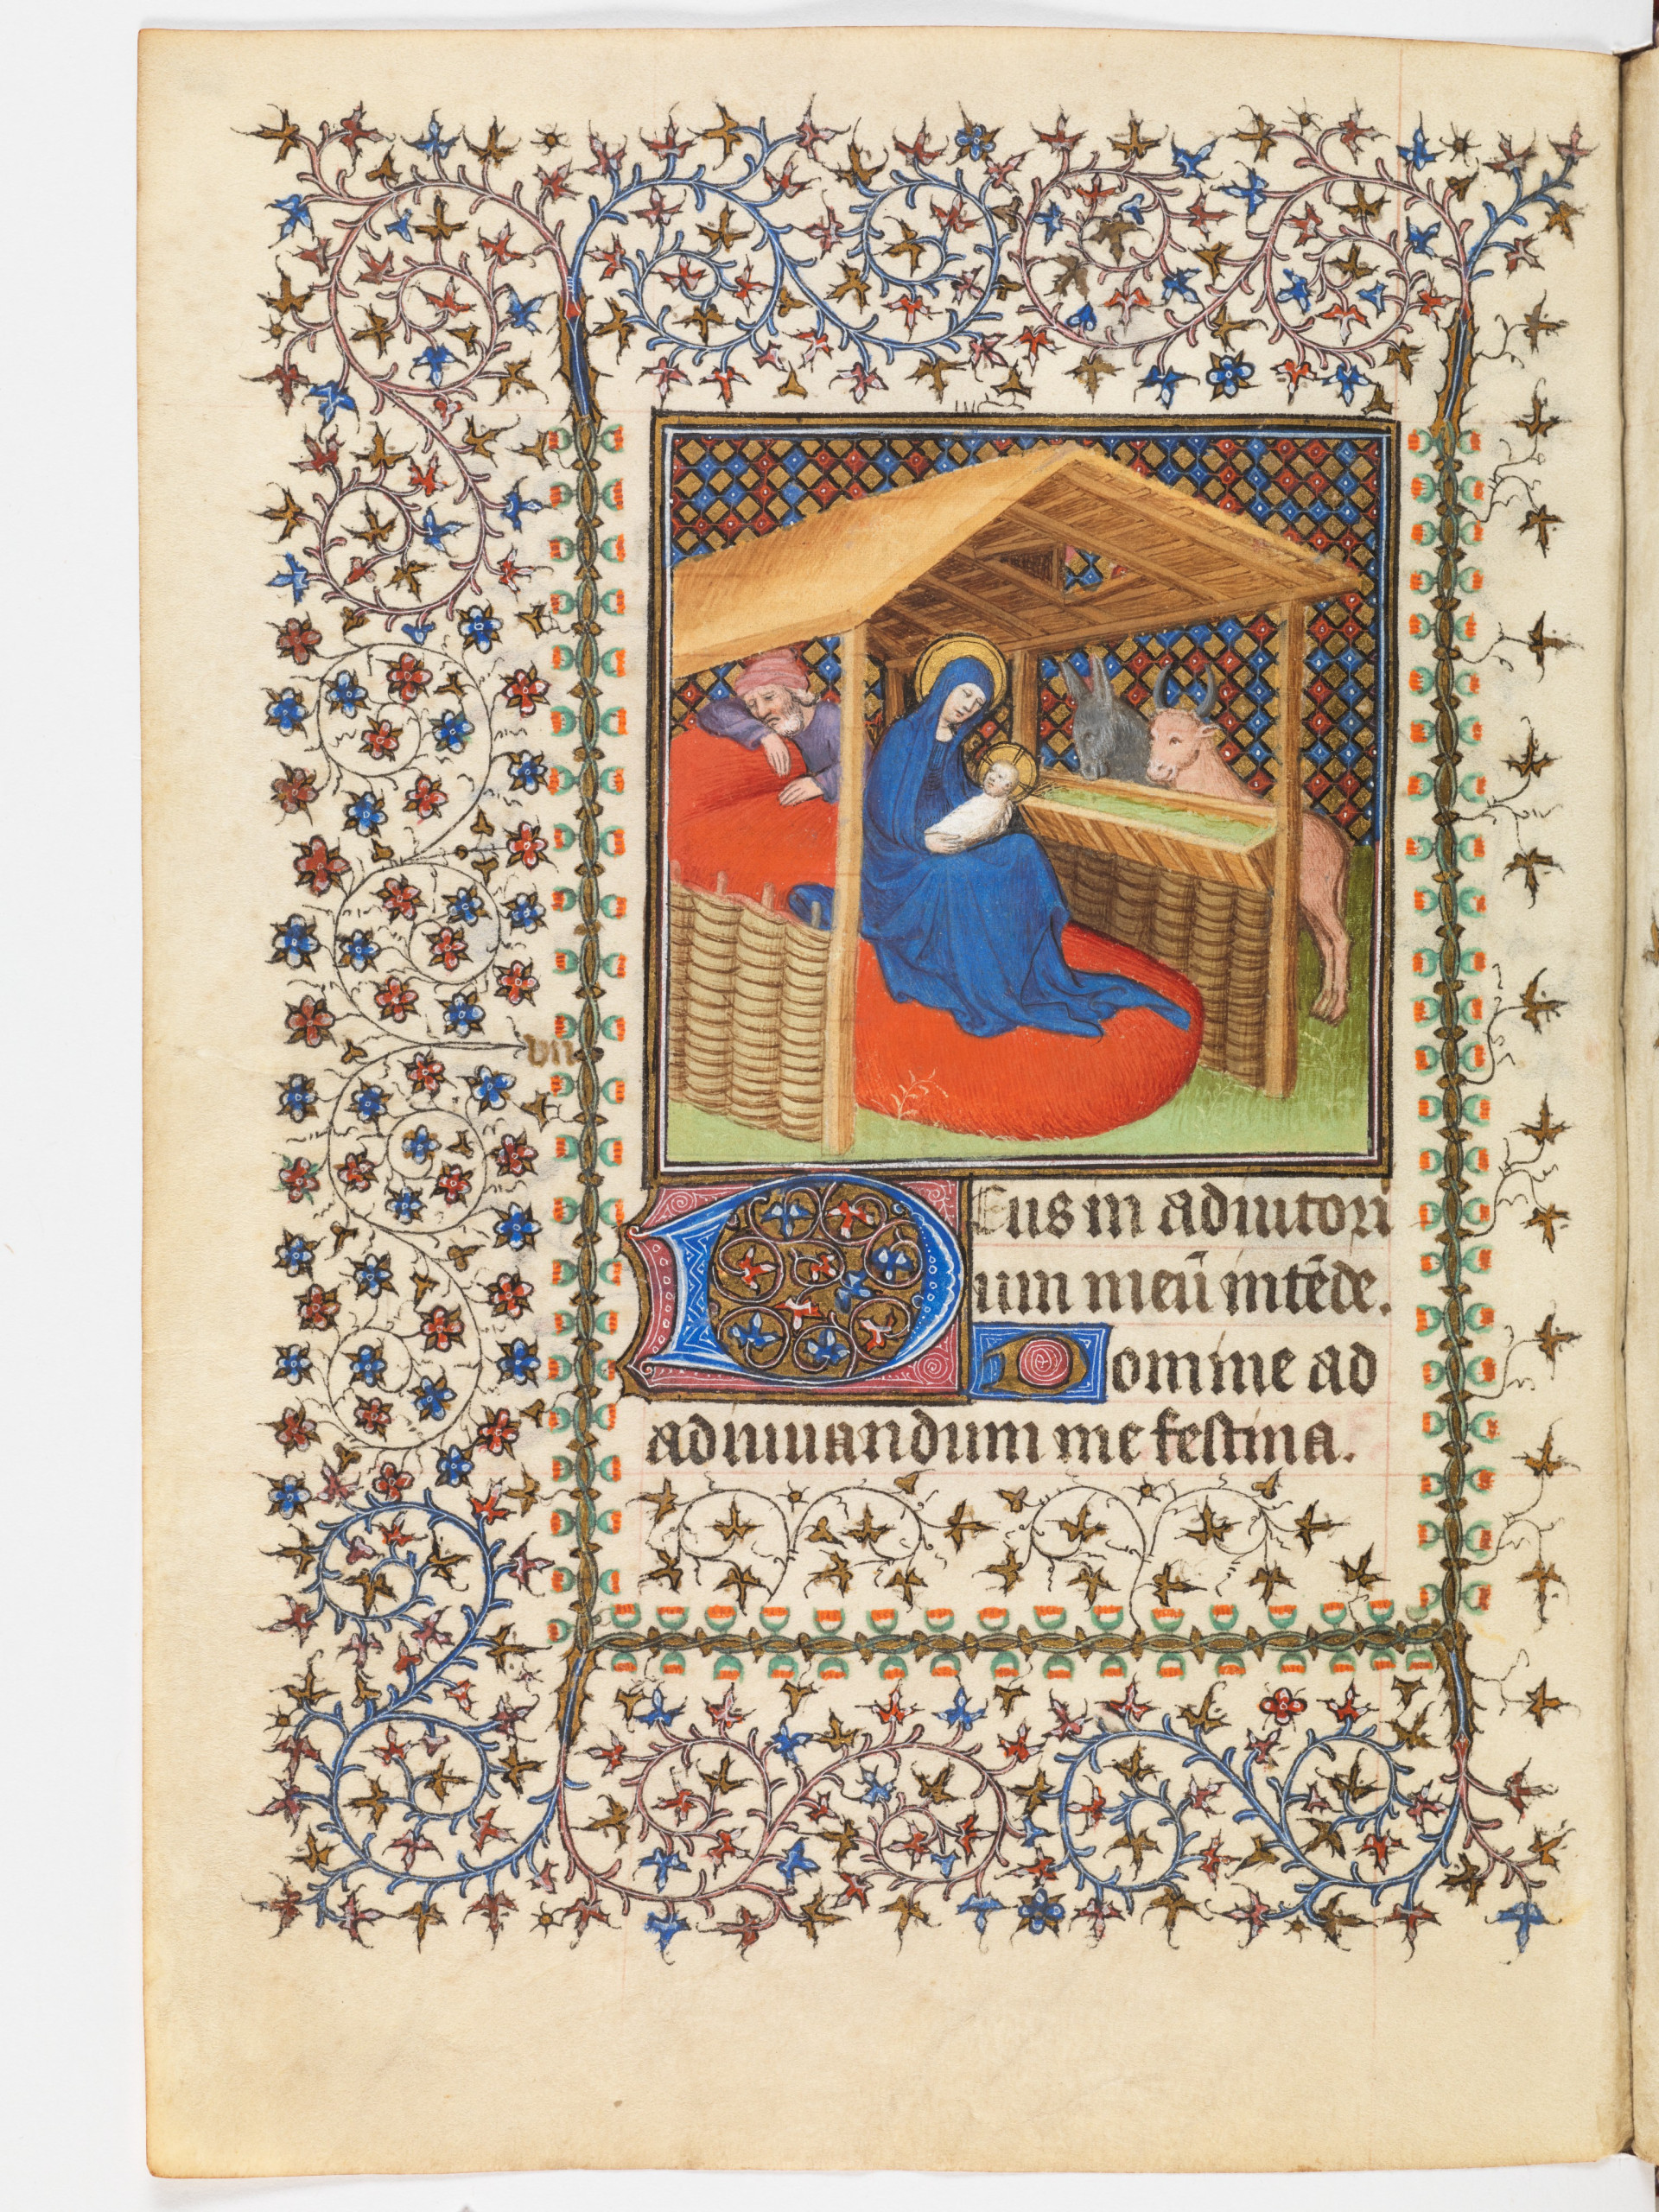 vii
Deus in adiutori
um meū intēde.
Domine ad
adiuuandum me festina.